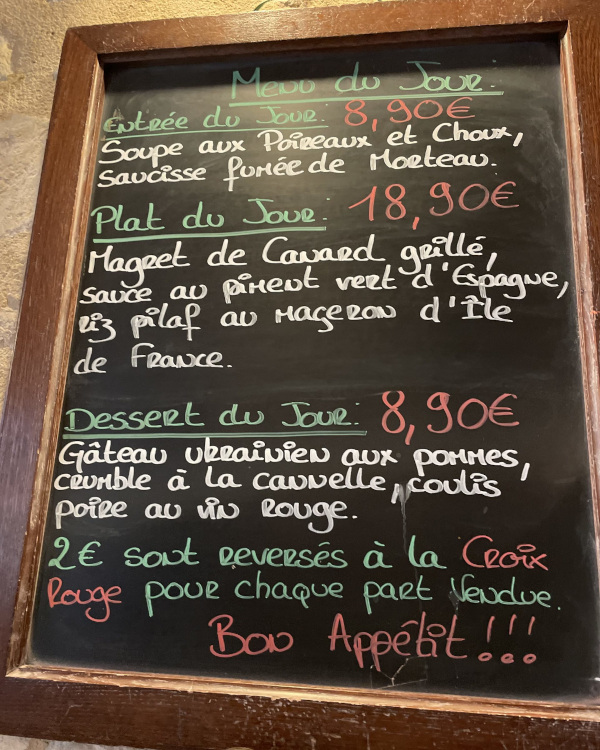 Menu du Jour.
Entrée du Jour: 8,90€
Soupe aux Poireaux et Choux,
saucisse fumée de Morteau.
Plat du Jour: 18,90€
Magret de Canard grillé,
sauce au piment vert d'Espagne,
riz pilaf au mageron d'Île
de France.
Dessert du Jour: 8,90€
Gâteau ukrainien aux pommes,
crumble à la cannelle, coulis
poire au vin rouge.
2€ sont reversés à la Croix
Rouge pour chaque part vendue.
Bon Appétit!!!